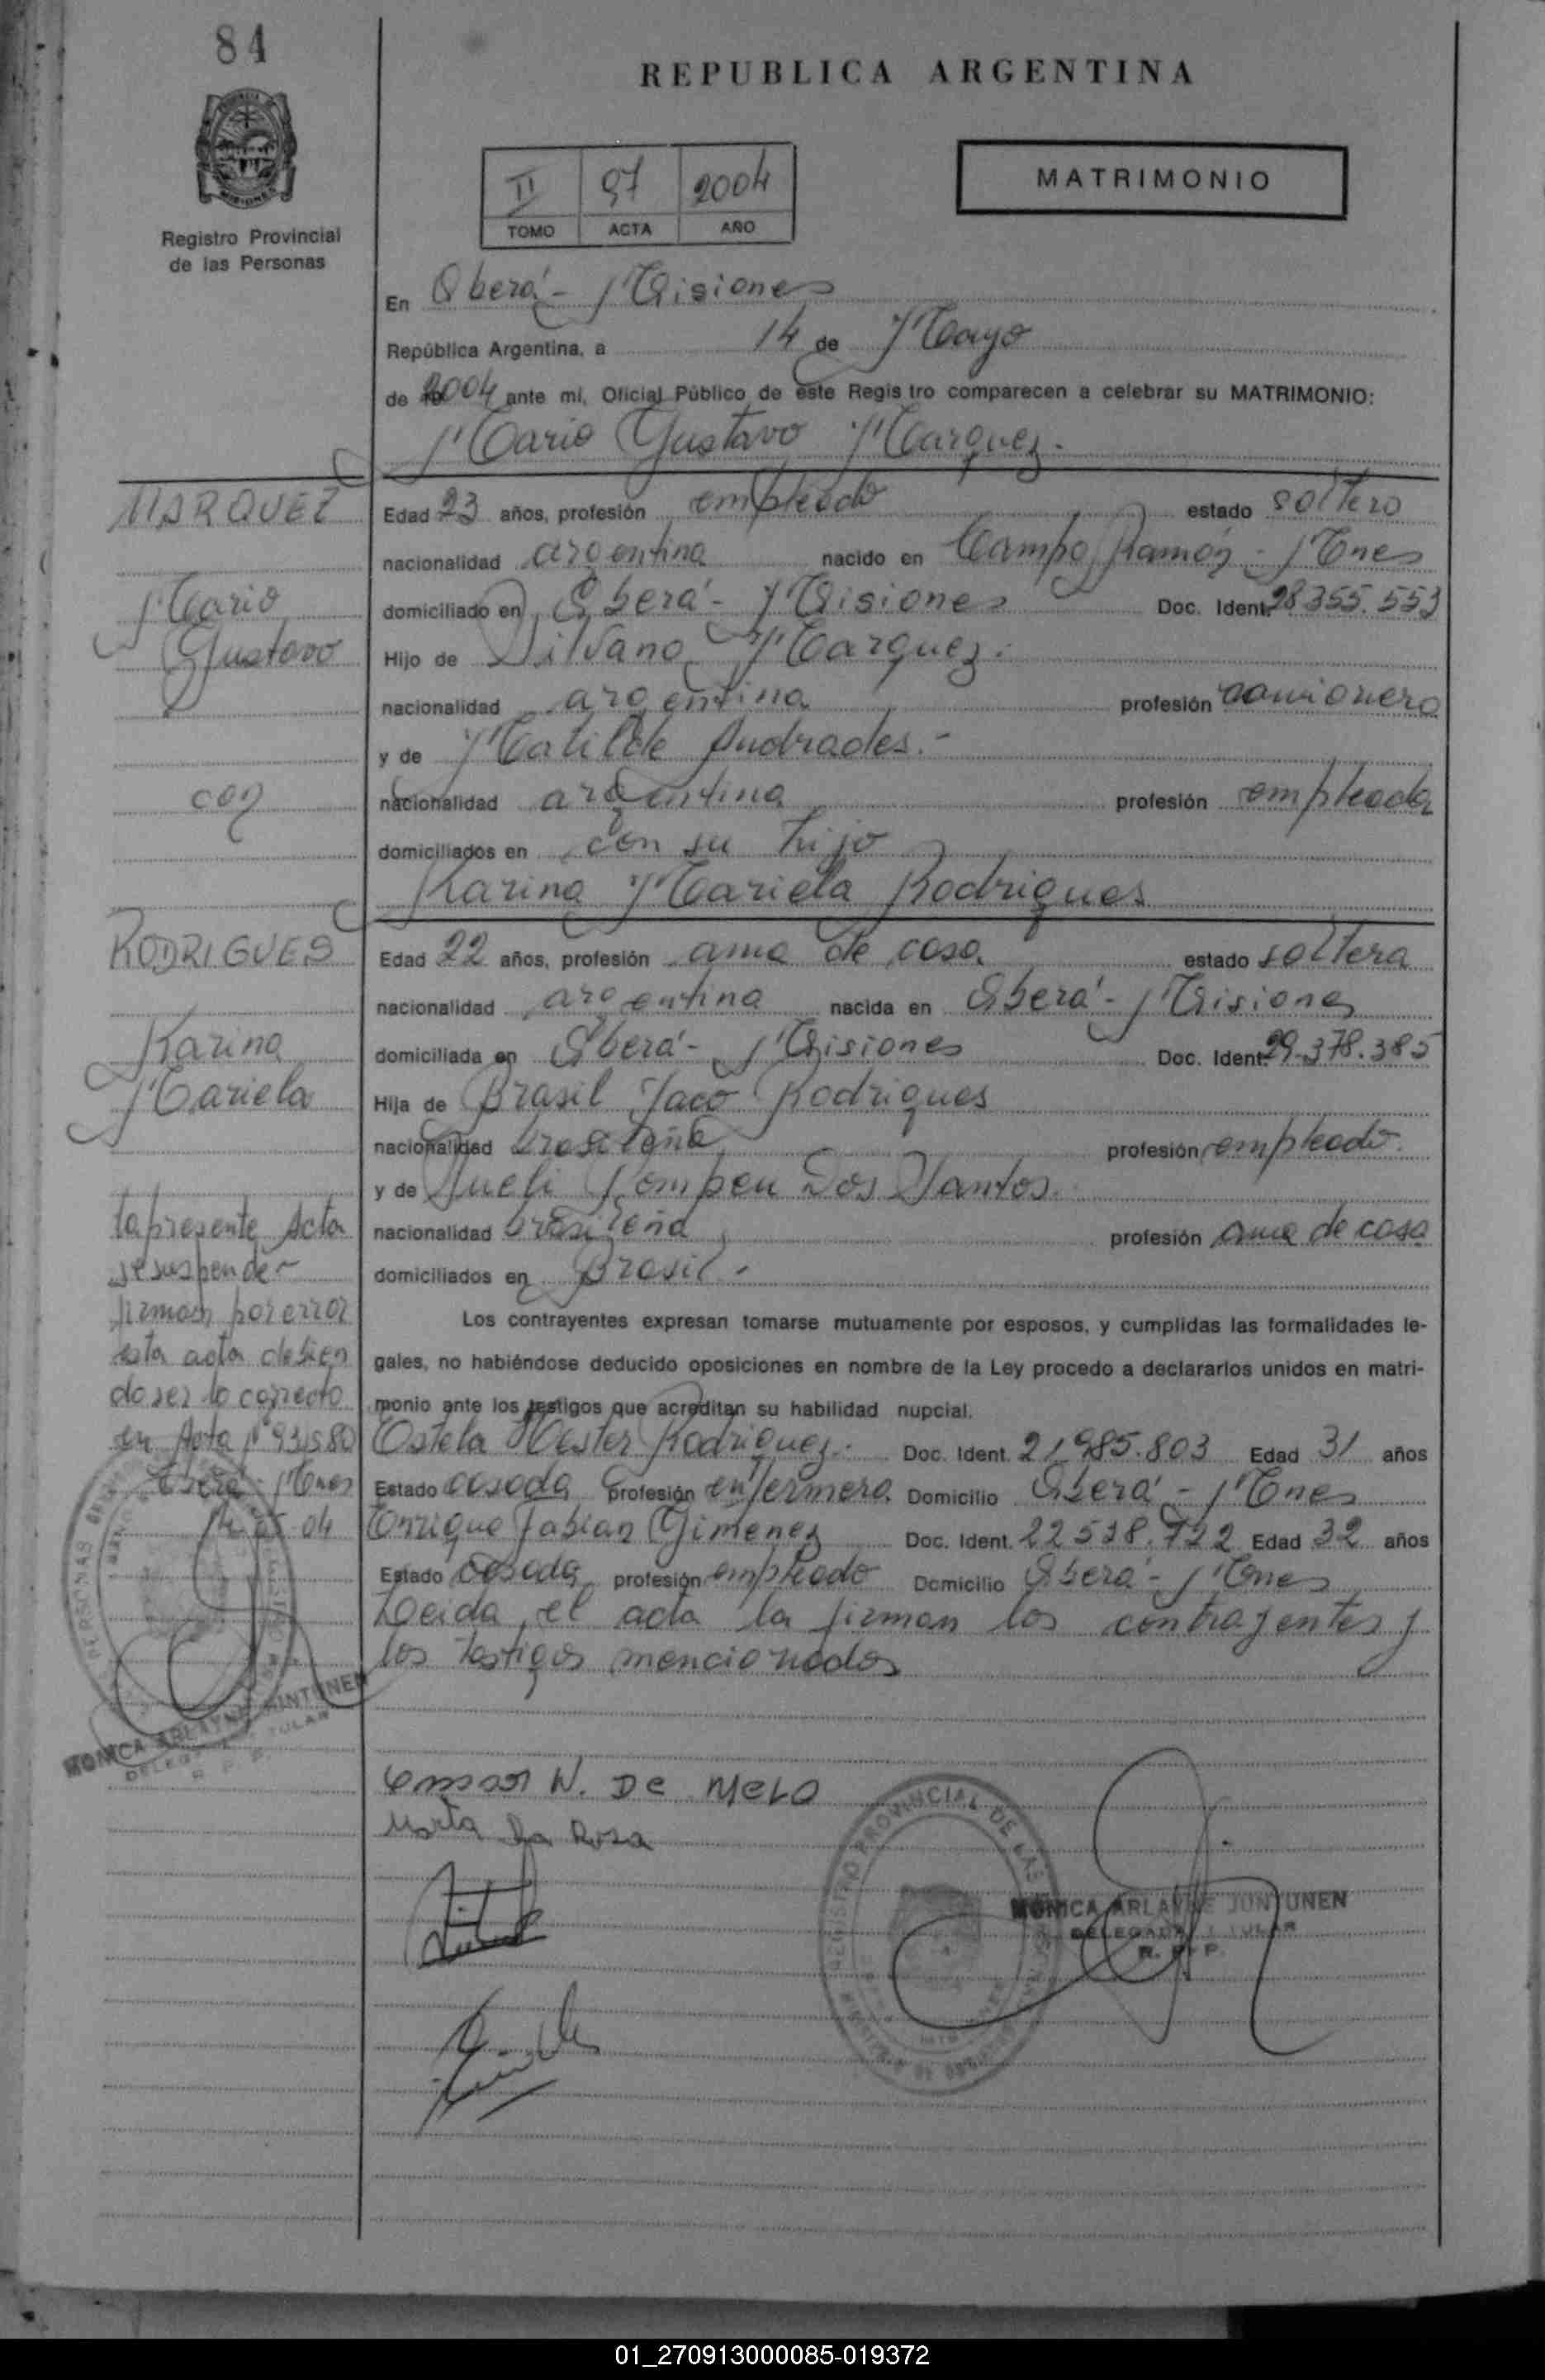 84
REPUBLICA ARGENTINA
II 97 2004
TOMO ACTA AÑO
MATRIMONIO
Registro Provincial
de las Personas
En Oberá - Misiones
República Argentina, a 14 de Mayo
de 2004 ante mí, Oficial Público de este Registro comparecen a celebrar su MATRIMONIO:
Mario Gustavo Marquez.
MARQUEZ
Mario
Gustavo
con
Edad 23 años, profesión empleado estado soltero
nacionalidad argentina nacido en Campo Ramón - Mnes
domiciliado en Oberá - Misiones Doc. Ident. 28.355.553
Hijo de Silvano Marquez.
nacionalidad argentina profesión camionero
y de Matilde Andrades.-
nacionalidad argentina profesión empleada
domiciliados en con su hijo
Karina Mariela Rodrigues
RODRIGUES
Karina
Mariela
Edad 22 años, profesión ama de casa estado soltera
nacionalidad argentina nacida en Oberá - Misiones
domiciliada en Oberá - Misiones Doc. Ident. 29.378.385
Hija de Brasil Jaco Rodrigues
nacionalidad brasileña profesión empleado.
y de Sueli Pompeu Dos Santos
nacionalidad brasileña profesión ama de casa
domiciliados en Brasil.
Los contrayentes expresan tomarse mutuamente por esposos, y cumplidas las formalidades le-
gales, no habiéndose deducido oposiciones en nombre de la Ley procedo a declararlos unidos en matri-
monio ante los testigos que acreditan su habilidad nupcial.
Estela Ester Rodriguez. Doc. Ident. 21.985.803 Edad 31 años
Estado casada profesión enfermera Domicilio Oberá - Mnes
Enrique Fabian Gimenez Doc. Ident. 22.528.722 Edad 32 años
Estado casado profesión empleado Domicilio Oberá - Mnes
Leida el acta la firman los contrayentes y
los testigos mencionados
la presente Acta
se suspende
firmaron por error
esta acta debien
do ser lo correcto
en Acta Nº 93
Oberá - Mnes
14 05 04
MONICA ARLAYNE JUNTUNEN
DELEGADA TITULAR
R. P. P.
W. De MeLo
Marta Da Rosa
REGISTRO PROVINCIAL DE LAS
MONICA ARLAYNE JUNTUNEN
DELEGADA TITULAR
R. P. P.
01_270913000085-019372